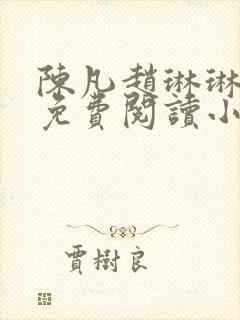 陳凡趙琳琳
免費閱讀小
賈樹良